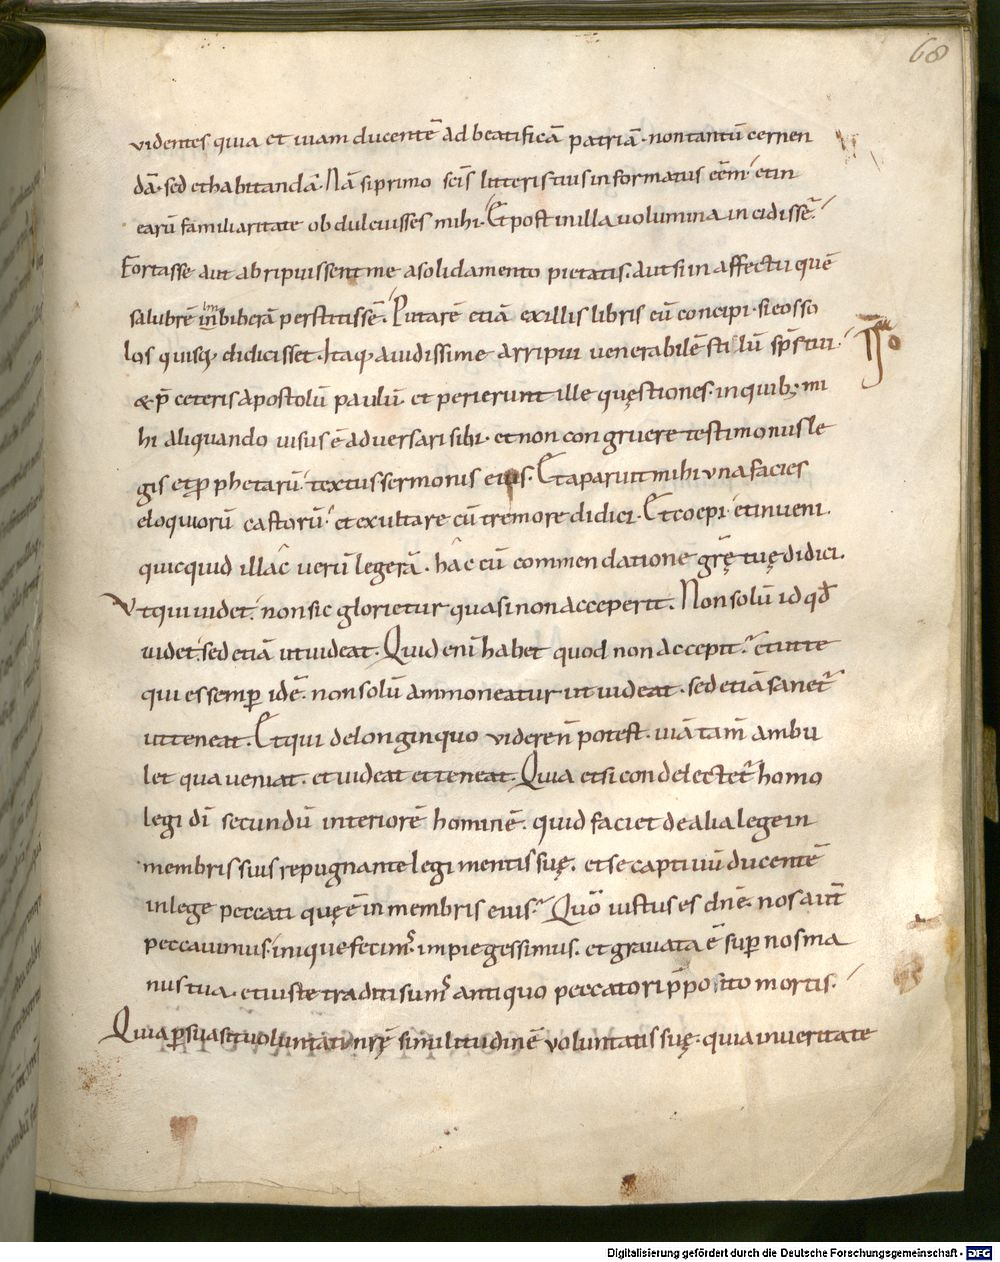 68
videntes quia et uiam ducentē ad beatificā patriā. non tantū cernen
dā. sed et habitandā. Nā si primo sc̄is litteris tuis informatus eēm. et in
earū familiaritate obdulcuisses mihi. Et post in illa uolumina incidissē.
Fortasse aut abripuissent me a solidamento pietatis. aut si in affectu quē
salubrē inbiberā perstitissē. Putarē etiā ex illis libris eū concipi. si eos so
los quisq; didicisset. Itaq; auidissime arripui uenerabilē stilū sp̄s tui.
& p̄ ceteris apostolū paulū. et perierunt ille quęstiones. in quib; mi
hi aliquando uisus ē aduersari sibi. et non congruere testimoniis le
gis et ꝓphetarū textus sermonis eius. Et aparuit mihi una facies
eloquiorū castorū. et exultare cū tremore didici. Et coepi. et inueni.
quicquid illac uerū legerā. hac cū commendatione grę̄ tuę didici.
Vt qui uidet. non sic glorietur quasi non acceperit. Non solū id qd̄
uidet. sed etiā ut uideat. Quid eni̅ habet quod non accepit. et ut te
qui es semꝑ idē. non solū ammoneatur ut uideat. sed etiā sanet̄
ut teneat. Et qui de longinquo uidere n̄ potest. uiā tam̄ ambu
let qua ueniat. et uideat et teneat. Quia etsi condelectet̄ homo
legi dī secundū interiorē hominē. quid faciet de alia lege in
membris suis repugnante legi mentis suę. et se captiuū ducentē
in lege peccati quę ē in membris eius. Quō iustus es dn̄e. nos aut̄
peccauimus. inique fecim̄. impie gessimus. et grauata ē suꝑ nos ma
nus tua. et iuste traditi sum̄ antiquo peccatori p̄posito mortis.
Quia ꝑsuasit uoluntati nrę̄ similitudinē uoluntatis suę. qua in ueritate
Digitalisierung gefördert durch die Deutsche Forschungsgemeinschaft - DFG